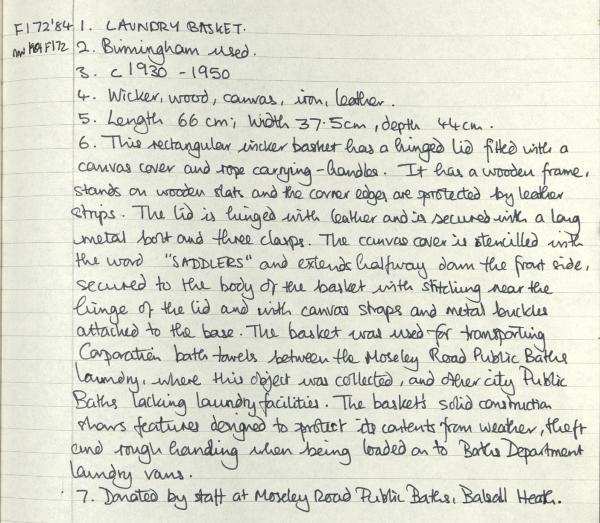 F172'84 1. LAUNDRY BASKET.
F172 2. Birmingham used.
3. c 1930 - 1950
4. Wicker, wood, canvas, iron, leather.
5. Length 66 cm; Width 37.5cm, depth 44cm.
6. This rectangular wicker basket has a hinged lid fitted with a
canvas cover and rope carrying-handles. It has a wooden frame,
stands on wooden slats and the corner edges are protected by leather
strips. The lid is hinged with leather and is secured with a long
metal bolt and three clasps. The canvas cover is stencilled with
the word "SADDLERS" and extends halfway down the front side,
secured to the body of the basket with stitching near the
hinge of the lid and with canvas straps and metal buckles
attached to the base. The basket was used for transporting
Corporation bath towels between the Moseley Road Public Baths
laundry, where this object was collected, and other city Public
Baths lacking laundry facilities. The basket's solid construction
shows features designed to protect its contents from weather, theft
and rough handling when being loaded on to Baths Department
laundry vans.
7. Donated by staff at Moseley Road Public Baths, Balsall Heath.